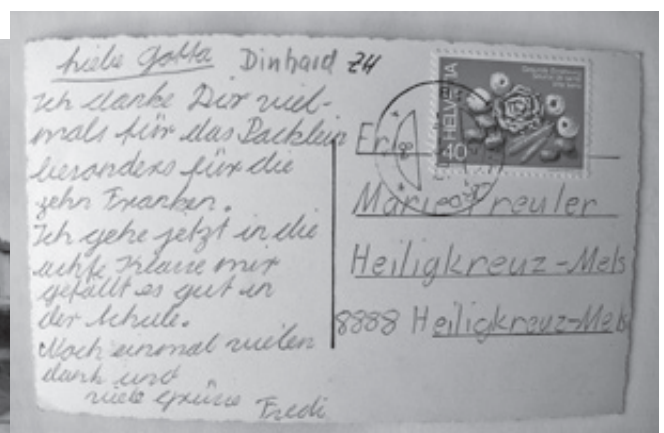 liebe Gotta Dinhard ZH
Ich danke Dir viel-
mals für das Päcklein
besonders für die
zehn Franken.
Ich gehe jetzt in die
achte Klasse mir
gefällt es gut in
der Schule.
Noch einmal vielen
dank und
viele Grüsse Fredi
HELVETIA
40
Frl.
Marie Freuler
Heiligkreuz-Mels
8888 Heiligkreuz-Mels